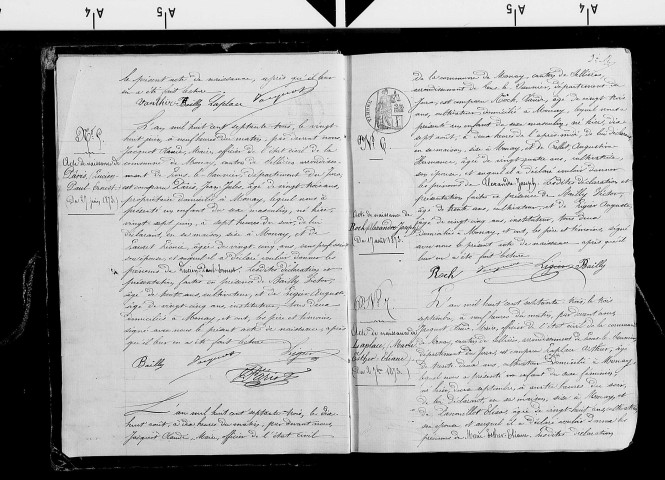 le présent acte de naissance, après qu'il leur
en a été fait lecture
Bailly Laplace Jacquot
N° 5
Acte de naissance de
Pâris, Lucien
Paul Ernest
Du 27 juin 1873
L'an mil huit cent septante trois, le vingt
huit juin, à neuf heures du matin, par devant nous
Jacquot Claude Marie, officier de l'état civil de la
commune de Monay, canton de Sellières, arrondissement
de Lons le Saunier, département du Jura,
est comparu Pâris, Jean Jules, âgé de vingt trois ans
propriétaire domicilié à Monay, lequel nous a
présenté un enfant du sexe masculin, né hier
vingt sept juin, à sept heures du soir, de lui
déclarant, en sa maison sise à Monay, et de
âgée de vingt cinq ans, sans profession
son épouse et auquel il a déclaré vouloir donner les
prénoms de Lucien Paul Ernest, lesdites déclaration et
présentation faites en présence de Bailly Victor
âgé de trente ans, cultivateur, et de Ligier Auguste
âgé de vingt cinq ans, instituteur, tous deux
domiciliés à Monay, et ont, les père et témoins,
signé avec nous le présent acte de naissance après
qu'il leur en a été fait lecture
Bailly Jacquot Ligier
Pâris
L'an mil huit cent septante trois, le dix
huit août, à dix heures du matin, par devant nous
Jacquot Claude Marie, officier de l'état civil
de la commune de Monay, canton de Sellières
arrondissement de Lons le Saunier, département du
Jura, est comparu Roch, âgé de vingt trois
ans, cultivateur, domicilié à Monay, lequel nous a
présenté un enfant du sexe masculin, né hier dix
sept août, à deux heures de l'après midi, de lui déclarant
en sa maison, sise à Monay, et de Augustine
Hermance, âgée de vingt quatre ans, cultivatrice,
son épouse, et auquel il a déclaré vouloir donner
les prénoms de Alexandre Joseph. Lesdites déclaration et
présentation faites en présence de Bailly Victor
âgé de trente ans, cultivateur et de Ligier Auguste
âgé de vingt cinq ans, instituteur, tous deux
domiciliés à Monay, et ont, les père et témoins, signé
avec nous le présent acte de naissance après qu'il
leur en a été fait lecture
Roch Ligier Bailly
N° 6
Acte de naissance de
Roch Alexandre Joseph
Du 17 août 1873
N° 7
Acte de naissance de
Laplace, Marie
Esther Eliane
Du 2 7bre 1873
L'an mil huit cent septante trois, le trois
septembre, à neuf heures du matin, par devant nous
Jacquot Claude Marie, officier de l'état civil de la commune
de Monay, canton de Sellières, arrondissement de Lons le Saunier
département du Jura, est comparu Laplace Arthur, âgé
de trente deux ans, cultivateur, domicilié à Monay,
lequel nous a présenté un enfant du sexe féminin,
né hier deux septembre, à quatre heures du soir,
de lui déclarant, en sa maison, sise à Monay, et
de âgée de vingt huit ans, cultivatrice
son épouse et auquel il a déclaré vouloir donner les
prénoms de Marie Esther Eliane, lesdites déclaration
A4
A5
A5
A4